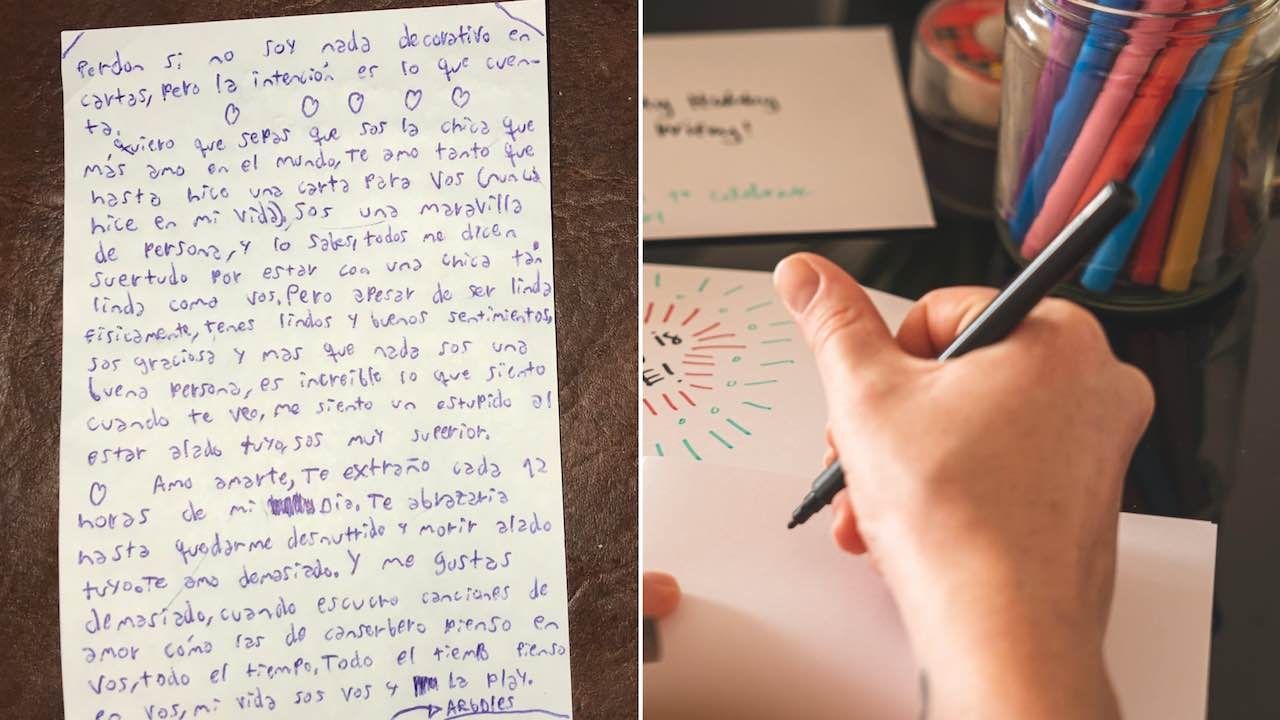 Perdon si no soy nada decorativo en
cartas, pero la intención es lo que cuen-
ta.
Quiero que sepas que sos la chica que
más amo en el mundo, Te amo tanto que
hasta hico una carta para vos (nunca
hice en mi vida), sos una maravilla
de persona, y lo sabes, todos me dicen
suertudo por estar con una chica tan
linda como vos. Pero apesar de ser linda
fisicamente, tenes lindos y buenos sentimientos,
sos graciosa y mas que nada sos una
buena persona, es increíble lo que siento
cuando te veo, me siento un estupido al
estar alado tuyo, sos muy superior.
Amo amarte, Te extraño cada 12
horas de mi Dia. Te abrazaria
hasta quedarme desnutrido y morir alado
tuyo. Te amo demasiado. Y me gustas
demasiado, cuando escucho canciones de
amor cómo las de canserbero pienso en
vos, todo el tiempo, Todo el tiemp pienso
en vos, mi vida sos vos y la play.
ARboles
is
E!